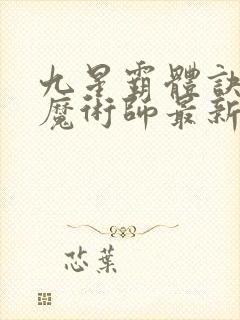 九星霸體訣
魔術師最新
芯葉